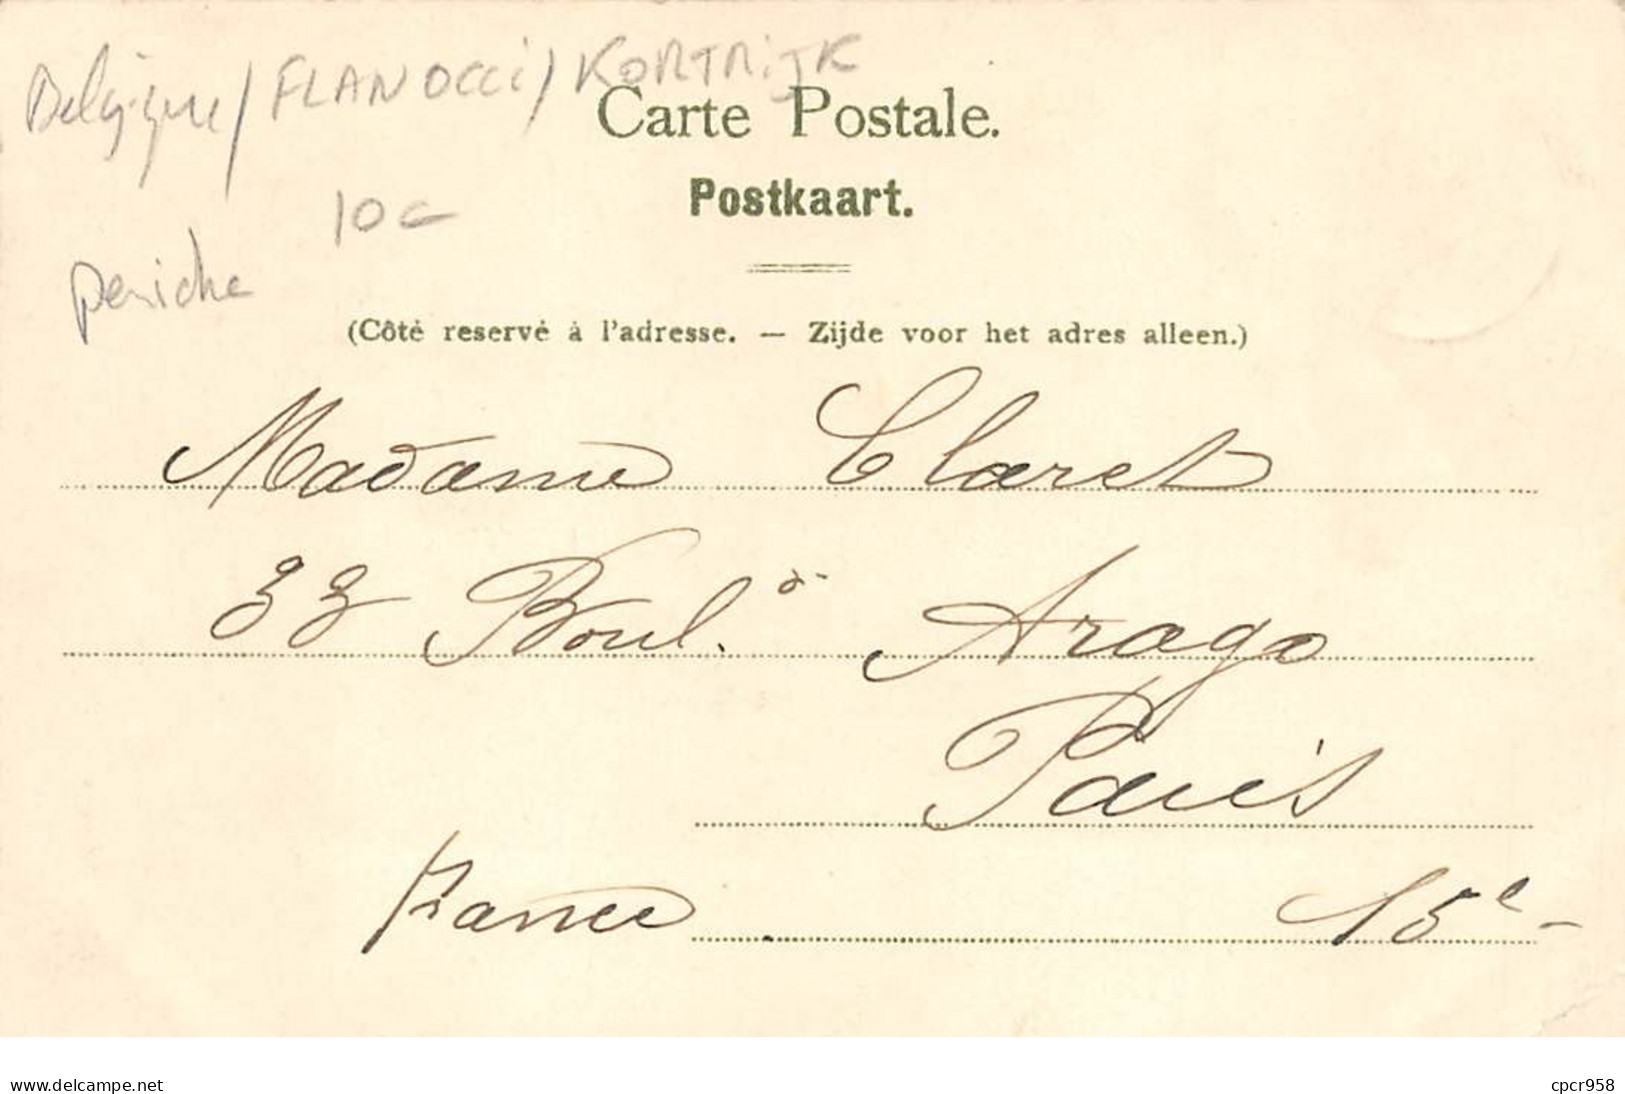 Belgique / FLAN OCCI / KORTRIJK
Carte Postale.
Postkaart.
10€
peniche
(Côté reservé à l'adresse. — Zijde voor het adres alleen.)
Madame Claret
33 Boul.d Arago
Paris
France 15e
www.delcampe.net cpcr958